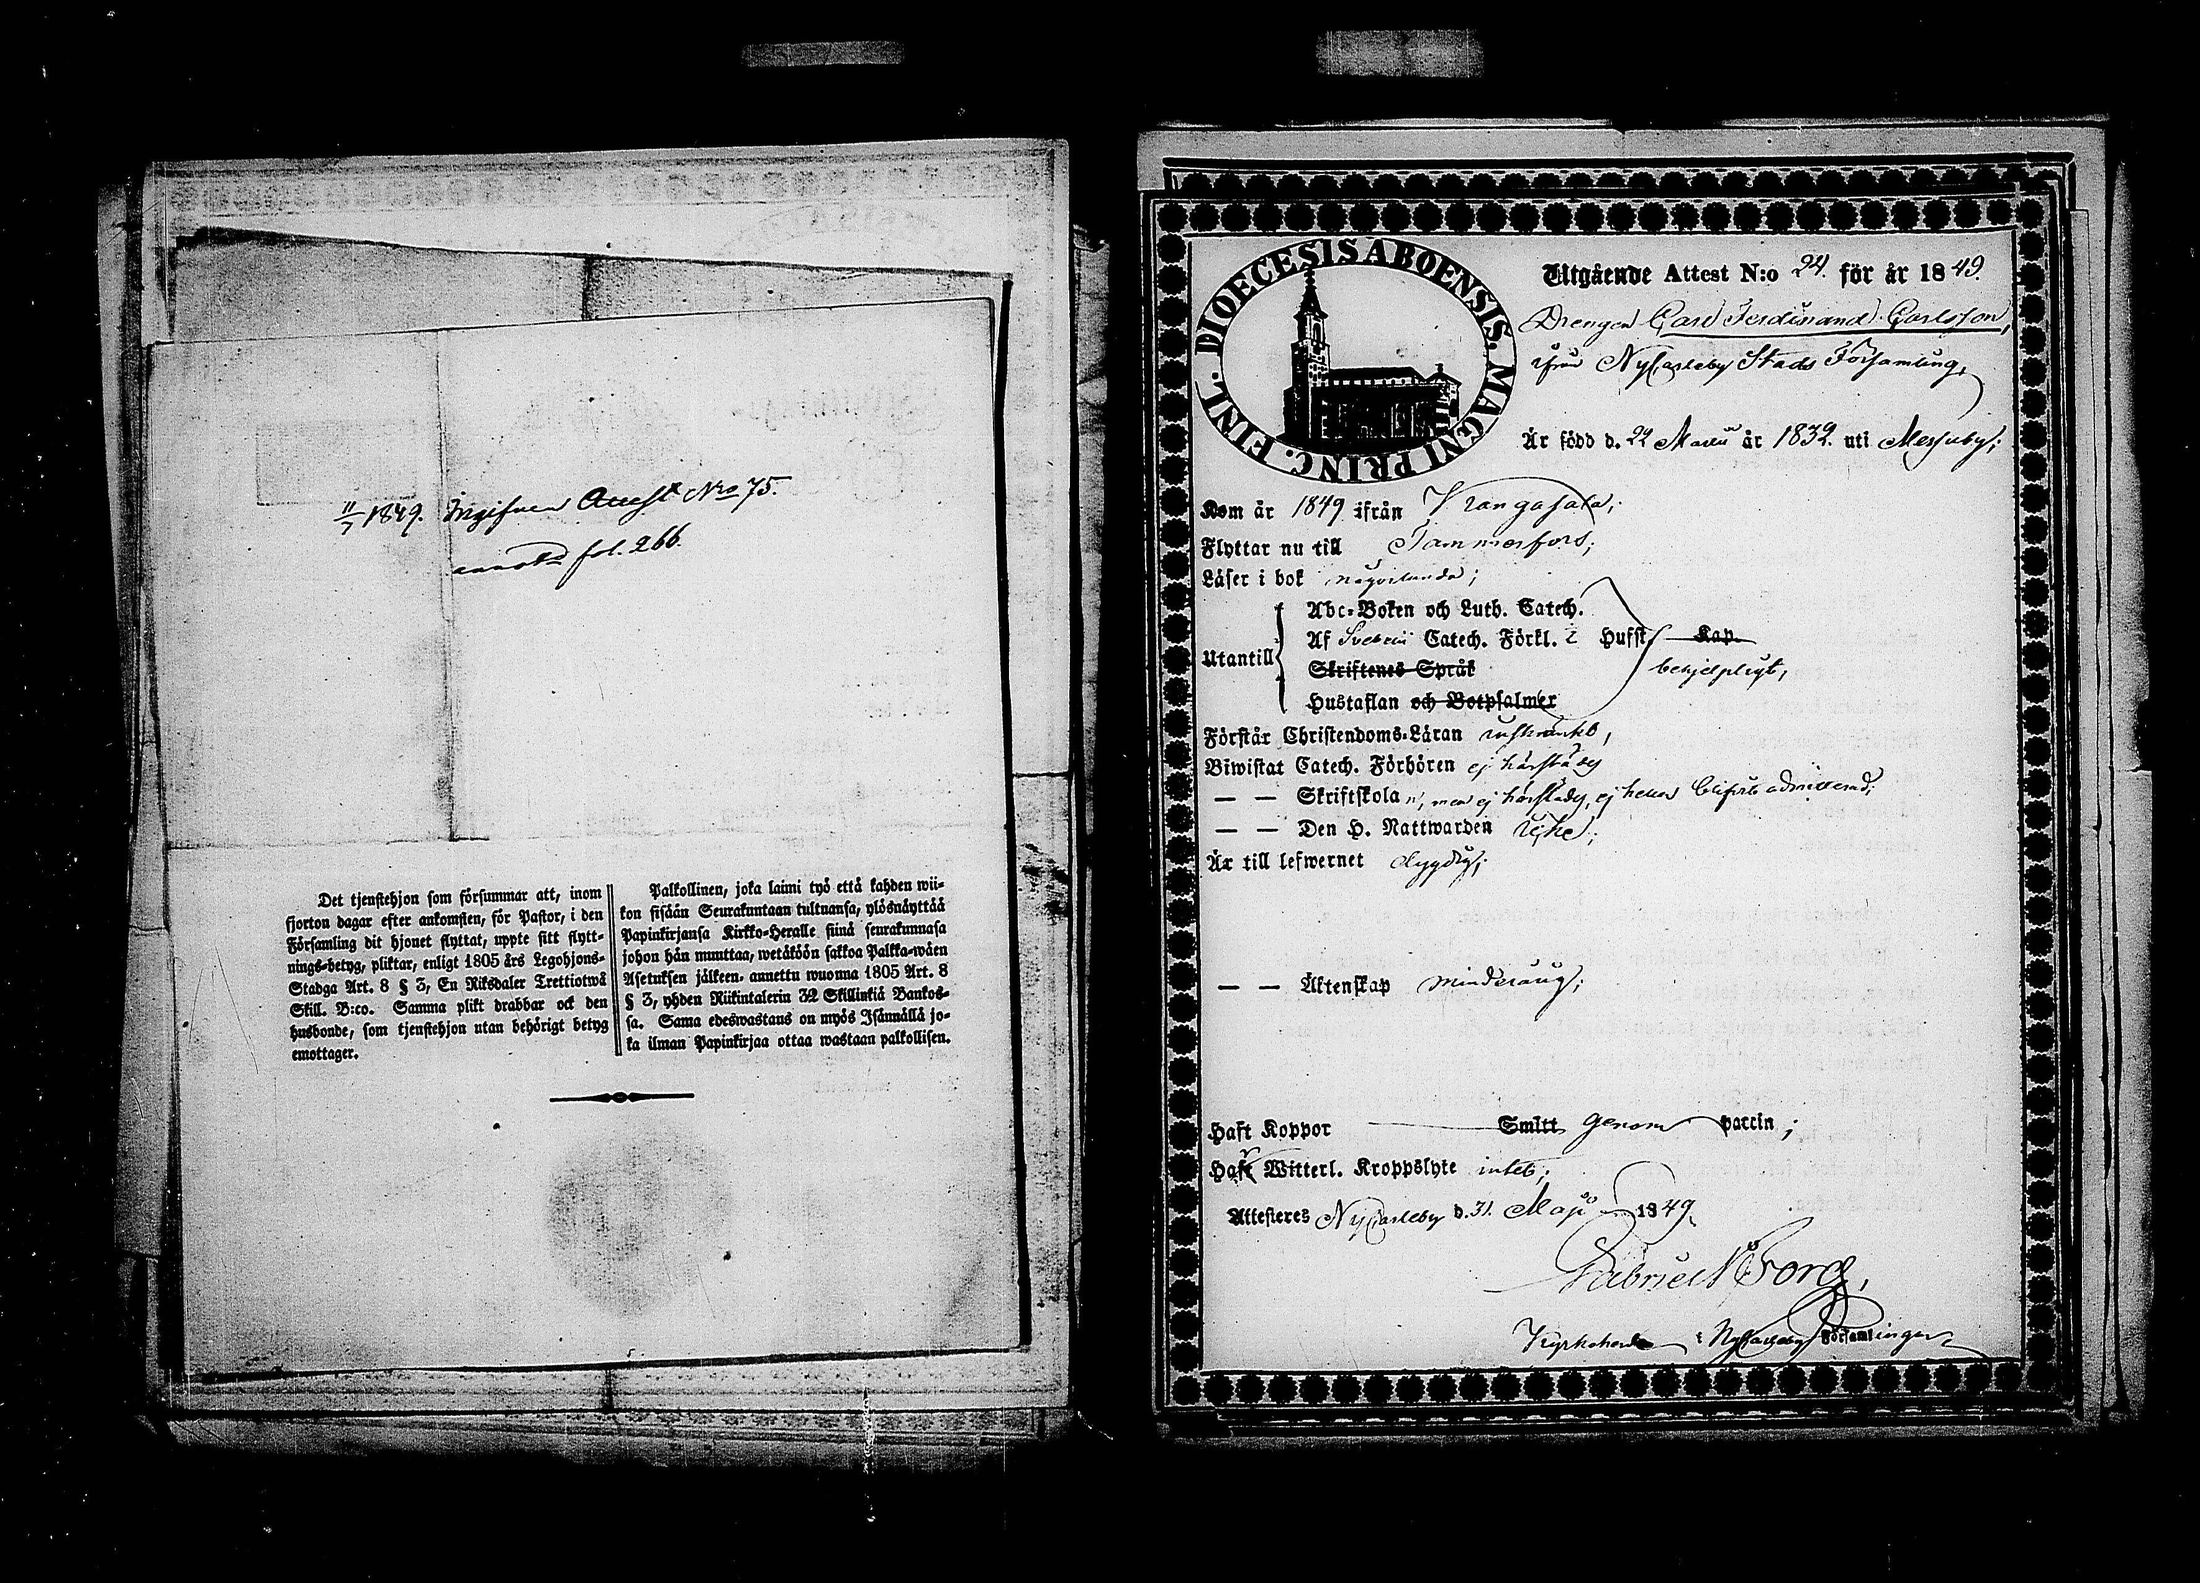 11/7 1849. Ingifven Attest Nro 75.
annotd fol. 266.
Det tjenstehjon som försummar att, inom
fjorton dagar efter ankomsten, för Pastor, i den
Församling dit hjonet flyttat, uppte sitt flytt-
nings-betyg, pliktar, enligt 1805 års Legohjons-
Stadga Art. 8 § 3, En Riksdaler Trettiotwå
Skill. B:co. Samma plikt drabbar ock den
husbonde, som tjenstehjon utan behörigt betyg
emottager.
Palkollinen, joka laimi työ että kahden wii-
kon sisään Seurakuntaan tultuansa, ylösnäyttää
Papinkirjansa Kirkko-Heralle siinä seurakunnasa
johon hän muuttaa, wetäköön sakkoa Palkka-wäen
Asetuksen jälkeen, annettu wuonna 1805 Art. 8
§ 3, yhden Riikintalerin 32 Skillinkiä Bankos-
sa. Sama edeswastaus on myös Isännällä jo-
ka ilman Papinkirjaa ottaa wastaan palkollisen.
DIOECESIS ABOENSIS. MAGNI PRINC. FINL.
Utgående Attest N:o 24. för år 1849.
Drengen Carl Ferdinand Carlsson,
ifrån NyCarleby Stads Församling,
Är född d. 22 Martii år 1832. uti Messuby;
Kom år 1849 ifrån Kangasala;
Flyttar nu till Tammerfors;
Läser i bok någorlunda;
Abc-Boken och Luth. Catech.
Utantill Af Svebeii Catech. Förkl. 2 Hufst Kap.
Skriftenes Språk behjelpligt,
Hustaflan och Botpsalmer
Förstår Christendoms-Läran inskränkt,
Biwistat Catech. Förhören ej härstädes
— — Skriftskola, men ej härstädes, ej heller blifvit admitterad;
— — Den H. Nattwarden icke;
Är till lefwernet dygdig;
— — Äktenskap minderårig;
Haft Koppor Smitt genom vaccin;
Haft Witterl. Kroppslyte intet;
Attesteres NyCarleby d. 31. Maji 1849.
Gabriel Borg,
Kyrkoherde i NyCarleby Församlingar